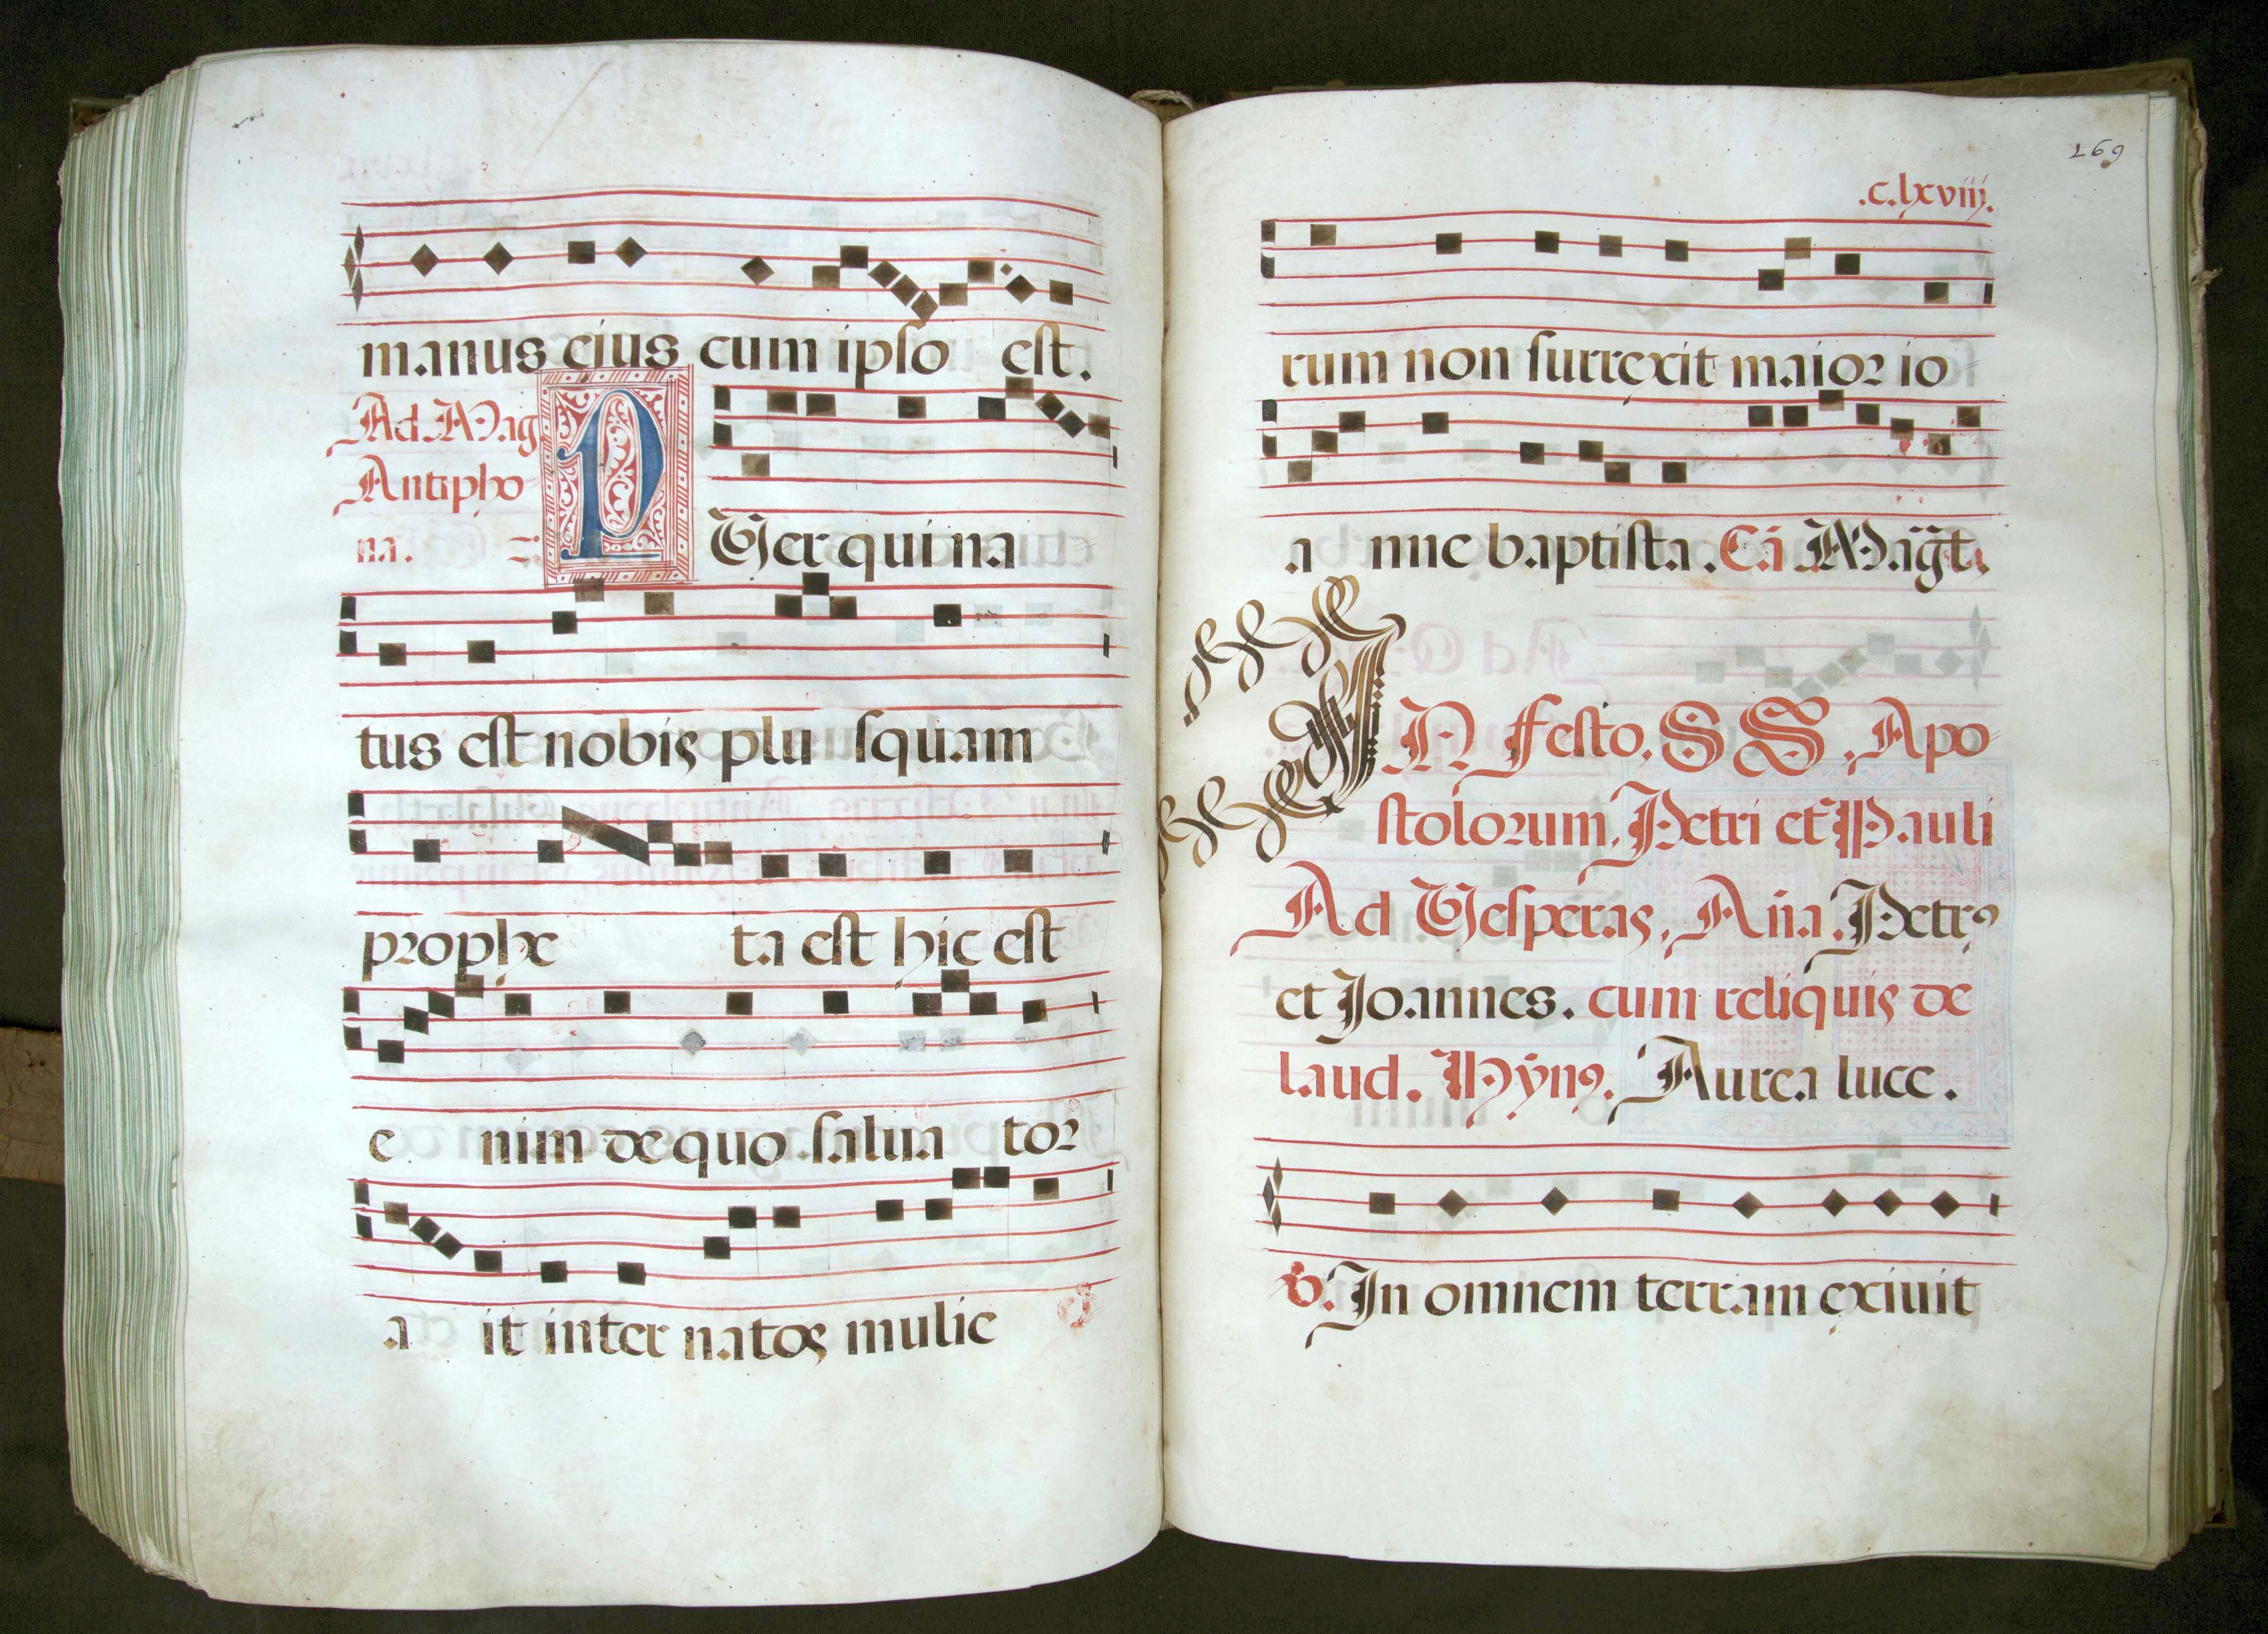 manus eius cum ipso est.
Ad Mag
Antipho
na.
P
Uer qui na
tus est nobis plu squam
prophe ta est hic est
e nim de quo salua tor
a it inter natos mulie
269
.c.lxviij.
rum non surrexit maior io
a nne baptista. Cā Māgt.
IN festo. SS. Apo
stolorum. Petri et Pauli
Ad Uesperas. Añā. Petrꝰ
et Joannes. cum reliquis de
laud. Hẏnꝰ. Aurea luce.
℣. In omnem terram exiuit